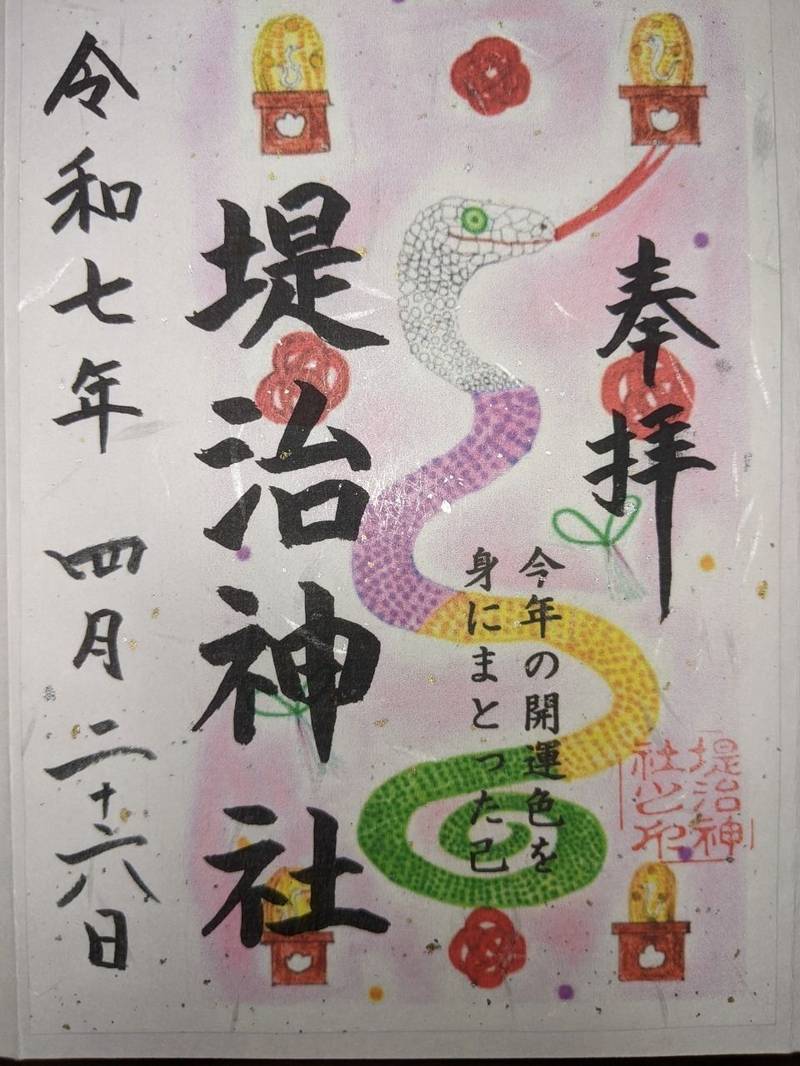 奉拝
今年の開運色を
身にまとった己
堤治神社
令和七年 四月二十六日
堤治神
社之印